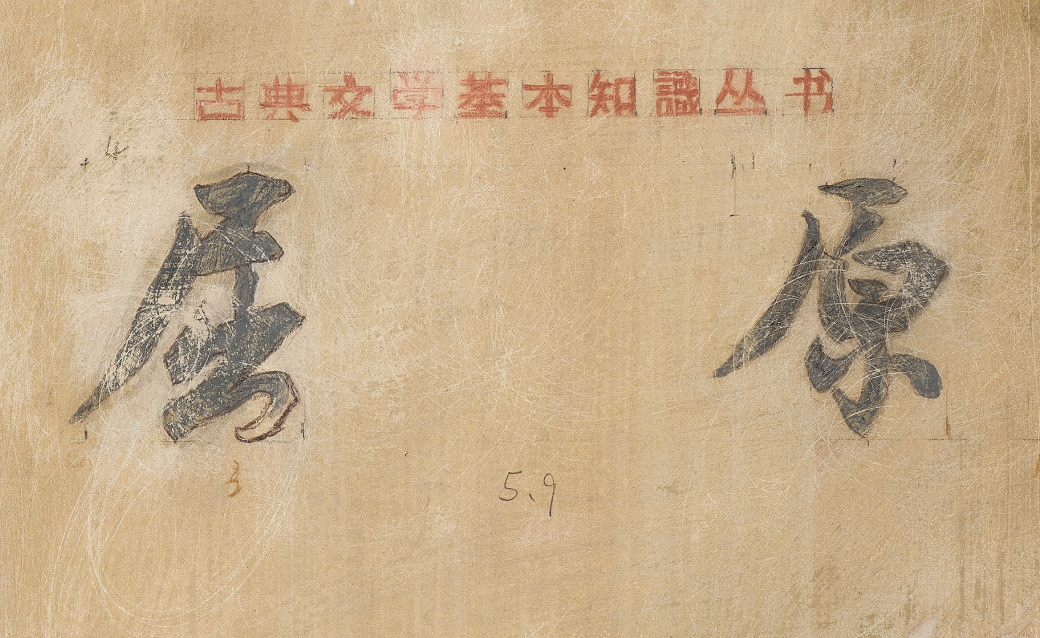 古典文学基本知識丛书
4
屈原
3
5.9